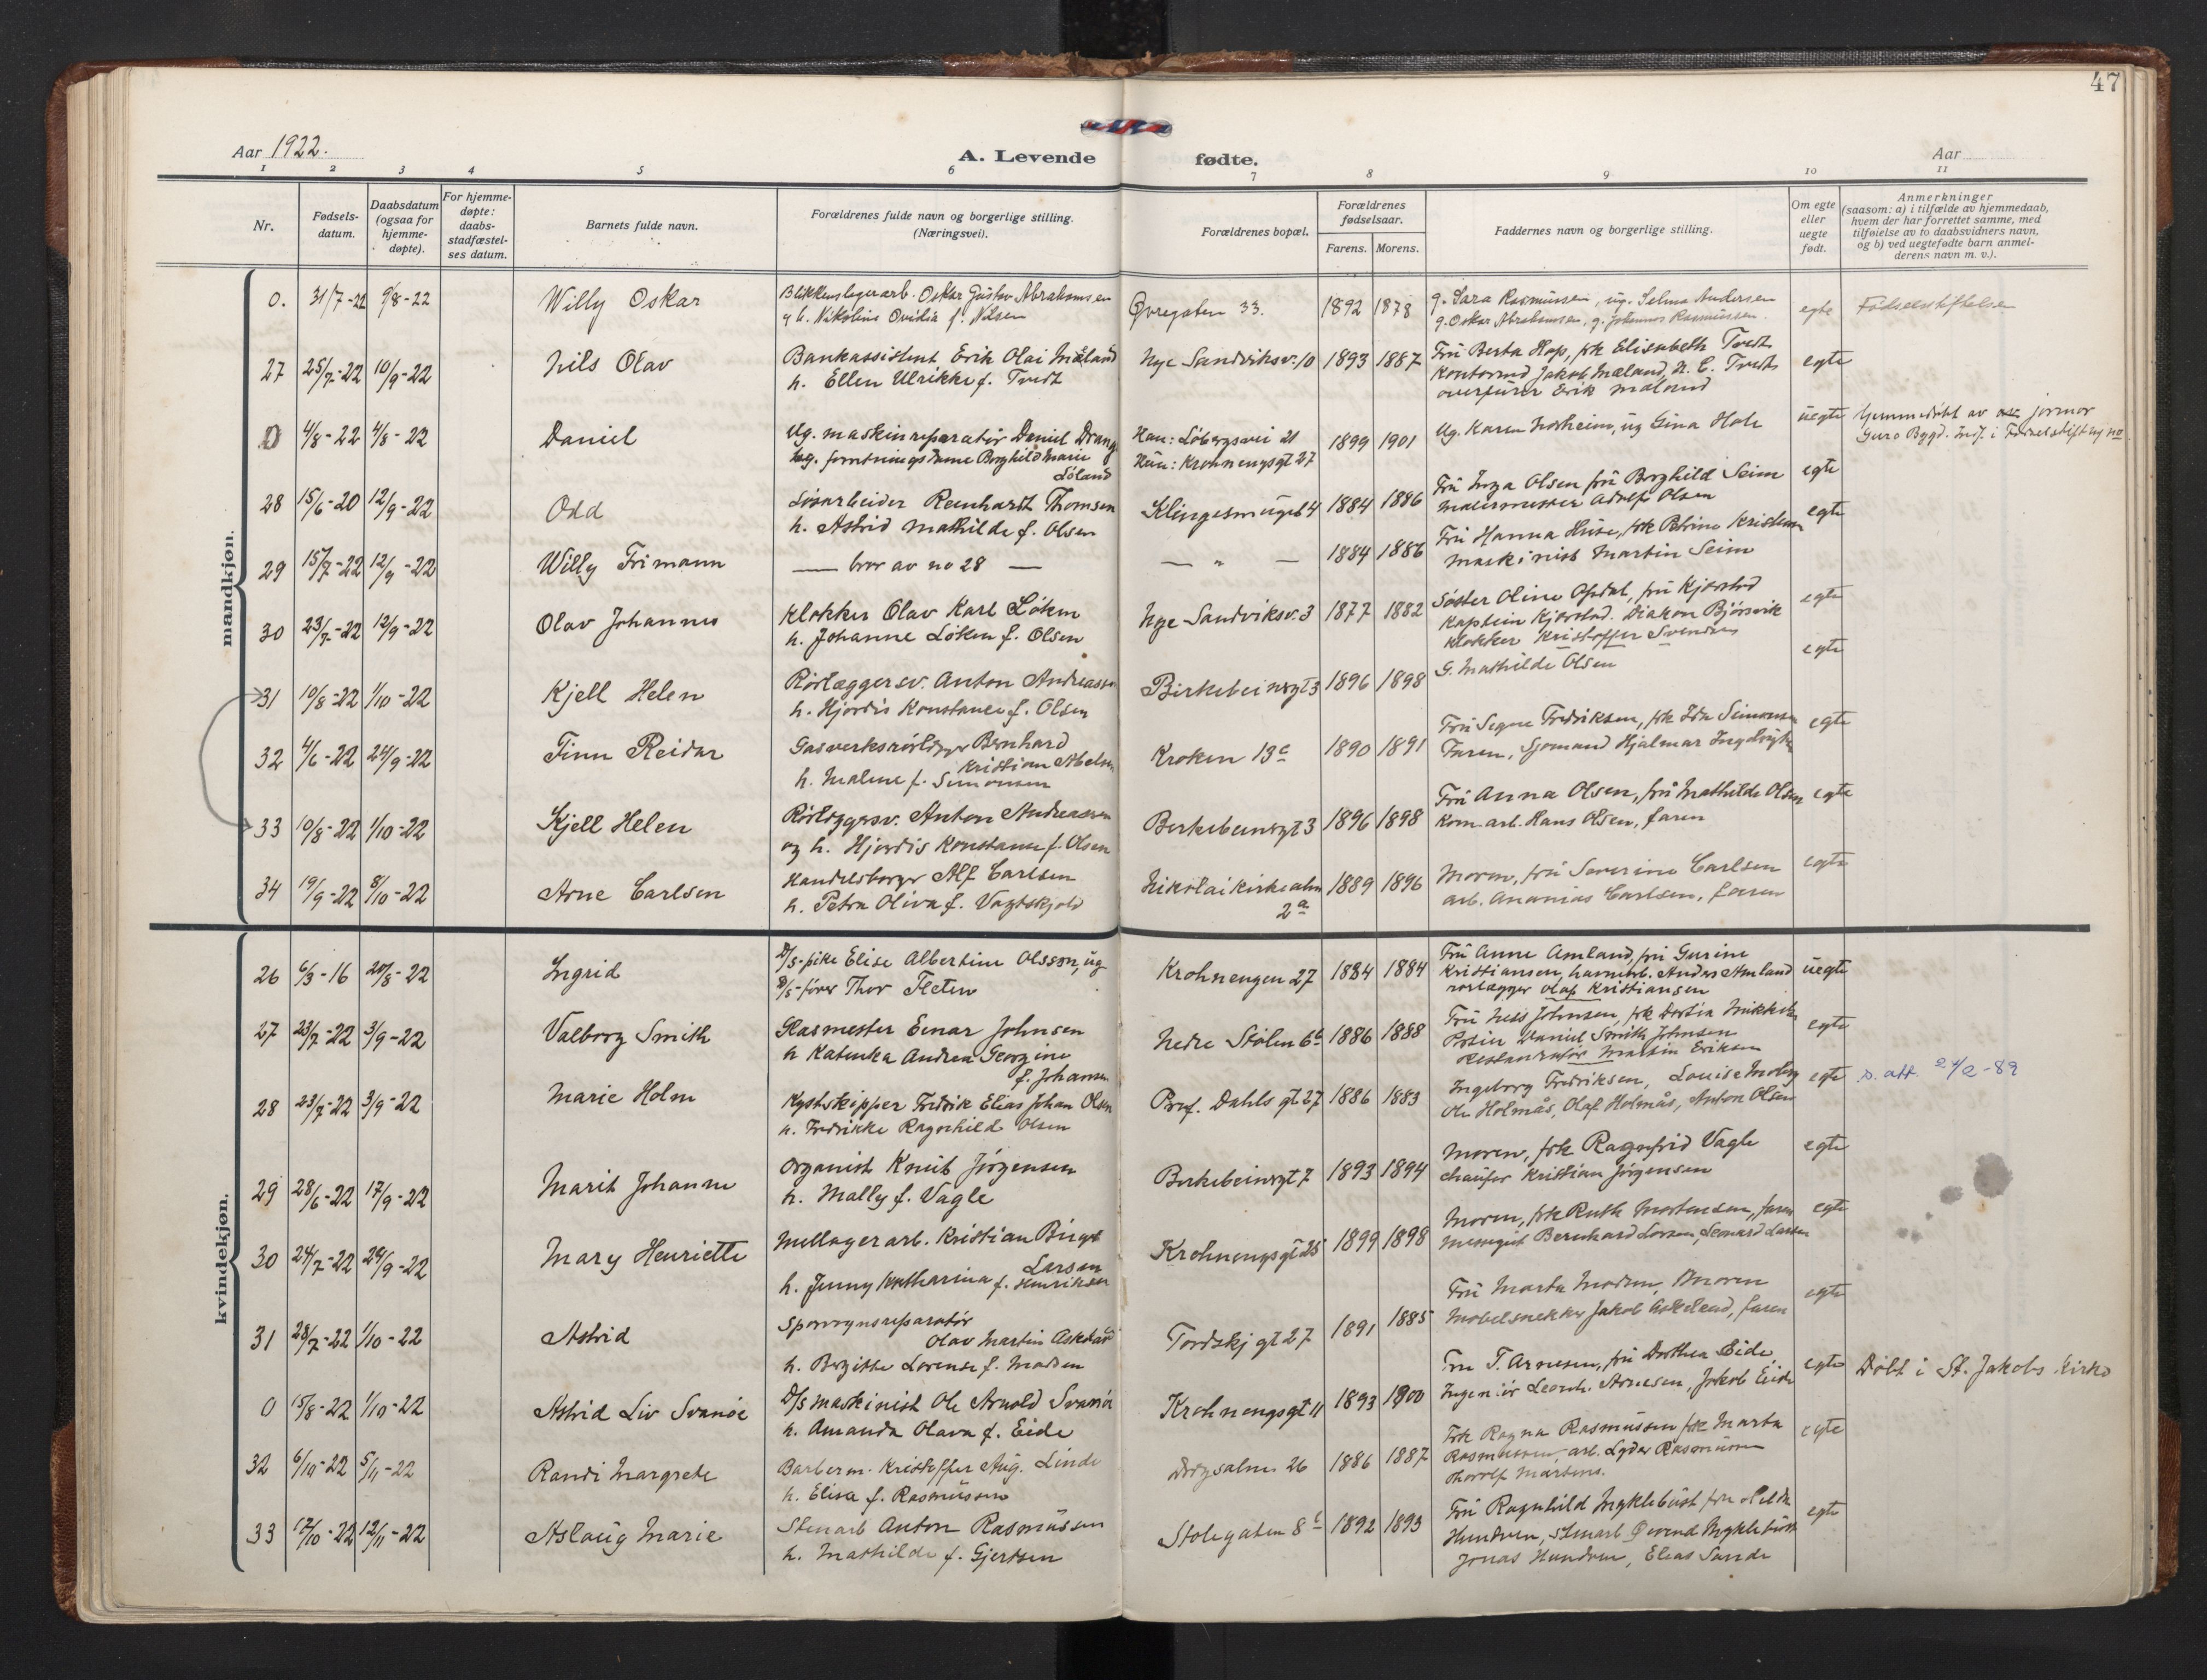 47
Aar 1922.
A. Levende fødte.
Aar
1 2 3 4 5 6 7 8 9 10 11
Nr.
Fødsels-
datum.
Daabsdatum
(ogsaa for
hjemme-
døpte).
For hjemme-
døpte:
daabs-
stadfæstel-
ses datum.
Barnets fulde navn.
Forældrenes fulde navn og borgerlige stilling.
(Næringsvei).
Forældrenes bopæl.
Forældrenes
fødselsaar.
Farens. Morens.
Faddernes navn og borgerlige stilling.
Om egte
eller
uegte
født.
Anmerkninger
(saasom: a) i tilfælde av hjemmedaab,
hvem der har forrettet samme, med
tilføielse av to daabsvidners navn,
og b) ved uegtefødte barn anmel-
derens navn m. v.).
mandkjøn.
0. 31/7-22 9/8-22 Willy Oskar
Blikkenslagerarb. Oskar Gustav Abrahamsen
og h. Nikoline Ovidia f. Nilsen
Øvregaten 33. 1892 1878
g. Sara Rasmussen, ug. Selma Andersen
g. Oskar Abrahamsen, g. Johannes Rasmussen
egte Fødselsstiftelsen
27 25/7-22 10/9-22 Nils Olav
Bankassistent Erik Olai Mæland
h. Ellen Ulrikke f. Tvedt
Nye Sandviksv. 10 1893 1887
Fru Berta Hop, frk Elisabeth Tvedt
Kontormd Jakob Mæland, N. C. Tvedt
Erik Mæland
egte
0 4/8-22 4/8-22 Daniel
Ug. maskinreparatør Daniel Drang
ug. forretningsdame Borghild Marie
Løland
Han: Løbergsvei 21
Hun: Krohnengsgt 27
1899 1901
Ug. Karen Norheim, ug Gina Hole
uegte Hjemmedøbt av jormor
Guro Bygd. Indf. i
28 15/6-20 12/9-22 Odd
Løsarbeider Reinhardt Thomsen
h. Astrid Mathilde f. Olsen
Klingesmuget 4 1884 1886
Fru Inga Olsen fru Borghild Seim
Malermester Adolf Olsen
egte
29 15/7-22 12/9-22 Willy Frimann
— bror av no 28 —
— " — 1884 1886
Fru Hanna Huse, frk Petrine Kristensen
Maskinist Martin Seim
egte
30 23/7-22 12/9-22 Olav Johannes
Klokker Olav Karl Løken
h. Johanne Løken f. Olsen
Nye Sandviksv. 3 1877 1882
Søster Oline Opdal, fru Kjørstad
Kaptein Kjørstad. Diakon Bjørsvik
Klokker Kristoffer Svendsen
egte
31 10/8-22 1/10-22 Kjell Helen
Rørlæggersv. Anton Andreassen
h. Hjordis Konstance f. Olsen
Birkebeinersgt 3 1896 1898
G. Mathilde Olsen
egte
32 4/6-22 24/9-22 Finn Reidar
Gasverksrørlægger Bernhard
Kristian Abelsen
h. Malene f. Simonsen
Kroken 13c 1890 1891
Fru Signe Fredriksen, frk Ida Simonsen
Faren, Sjømand Hjalmar
egte
33 10/8-22 1/10-22 Kjell Helen
Rørlæggersv. Anton Andreassen
og h. Hjordis Konstance f. Olsen
Birkebeinersgt 3 1896 1898
Fru Anna Olsen, fru Mathilde Olsen
Kom. arb. Hans Olsen, faren
egte
34 19/9-22 8/10-22 Arne Carlsen
Handelsborger Alf Carlsen
h. Petra Oliva f. Vagtskjold
Nikolaikirkealm
2a
1889 1896
Moren, fru Severine Carlsen
arb. Ananias Carlsen, faren
egte
kvindekjøn.
26 6/3-16 20/8-22 Ingrid
D/S-pike Elise Albertine Olsson, ug
D/S-fører Thor Fleten
Krohnengen 27 1884 1884
Fru Anne Amland, fru Gurine
Kristiansen, havnearb. Anders Amland
rørlægger Olaf Kristiansen
uegte
27 23/7-22 3/9-22 Valborg Smith
Glasmester Einar Johnsen
h Katinka Andrea Georgine
f. Johansen
Nedre Stølen 6c 1886 1888
Fru Johnsen, frk
Daniel Smith Johnsen
Martin Eriksen
egte
28 23/7-22 3/9-22 Marie Holm
Kystskipper Fredrik Elias Johan Olsen
h. Fredrikke Ragnhild Olsen
Prof. Dahls gt 27 1886 1883
Ingeborg Fredriksen, Louise
Ole Holmås, Olaf Holmås, Anton Olsen
egte s. att. 24/2-89
29 28/6-22 17/9-22 Marit Johanne
Organist Knut Jørgensen
h. Mally f. Vagle
Birkebeinersgt 7 1893 1894
Moren, frk Ragnfrid Vagle
chauffør Kristian Jørgensen
egte
30 24/7-22 24/9-22 Mary Henriette
Mellagerarb. Kristian Birger
Larsen
h. Jenny Katharina f. Henriksen
Krohnengsgt 25 1899 1898
Moren, frk Ruth Mortensen, faren
Bernhard Larsen, Leonard Larsen
egte
31 28/7-22 1/10-22 Astrid
Sporvognsreparatør
Olav Martin Askeland
h. Birgitte Lorense f. Madsen
Tordskj gt 27 1891 1885
Fru Marta Madsen, Moren
Møbelsnekker Jakob Askeland, faren
egte
0 15/8-22 1/10-22 Astrid Liv Svanøe
D/S maskinist Ole Arnold Svanøe
h. Amanda Olava f. Eide
Krohnengsgt 11 1893 1900
Fru T. Arnesen, fru Dorthea Eide
Ingeniør Leonh. Arnesen, Jakob Eide
egte Døbt i St. Jakobs kirke
32 6/10-22 5/11-22 Randi Margrete
Barberm. Kristoffer Aug. Linde
h. Elisa f. Rasmussen
26 1886 1887
Frk Ragna Rasmussen frk Marta
Rasmussen, arb. Lyder Rasmussen
Thorolf Martens.
egte
33 17/10-22 12/11-22 Aslaug Marie
Stenarb Anton Rasmussen
h. Mathilde f. Gjertsen
Stølegaten 8c 1892 1893
Fru Ragnhild Myklebust fru Hilda
Hundven, stenarb Øivind Myklebust
Jonas Hundven, Elias Sande
egte